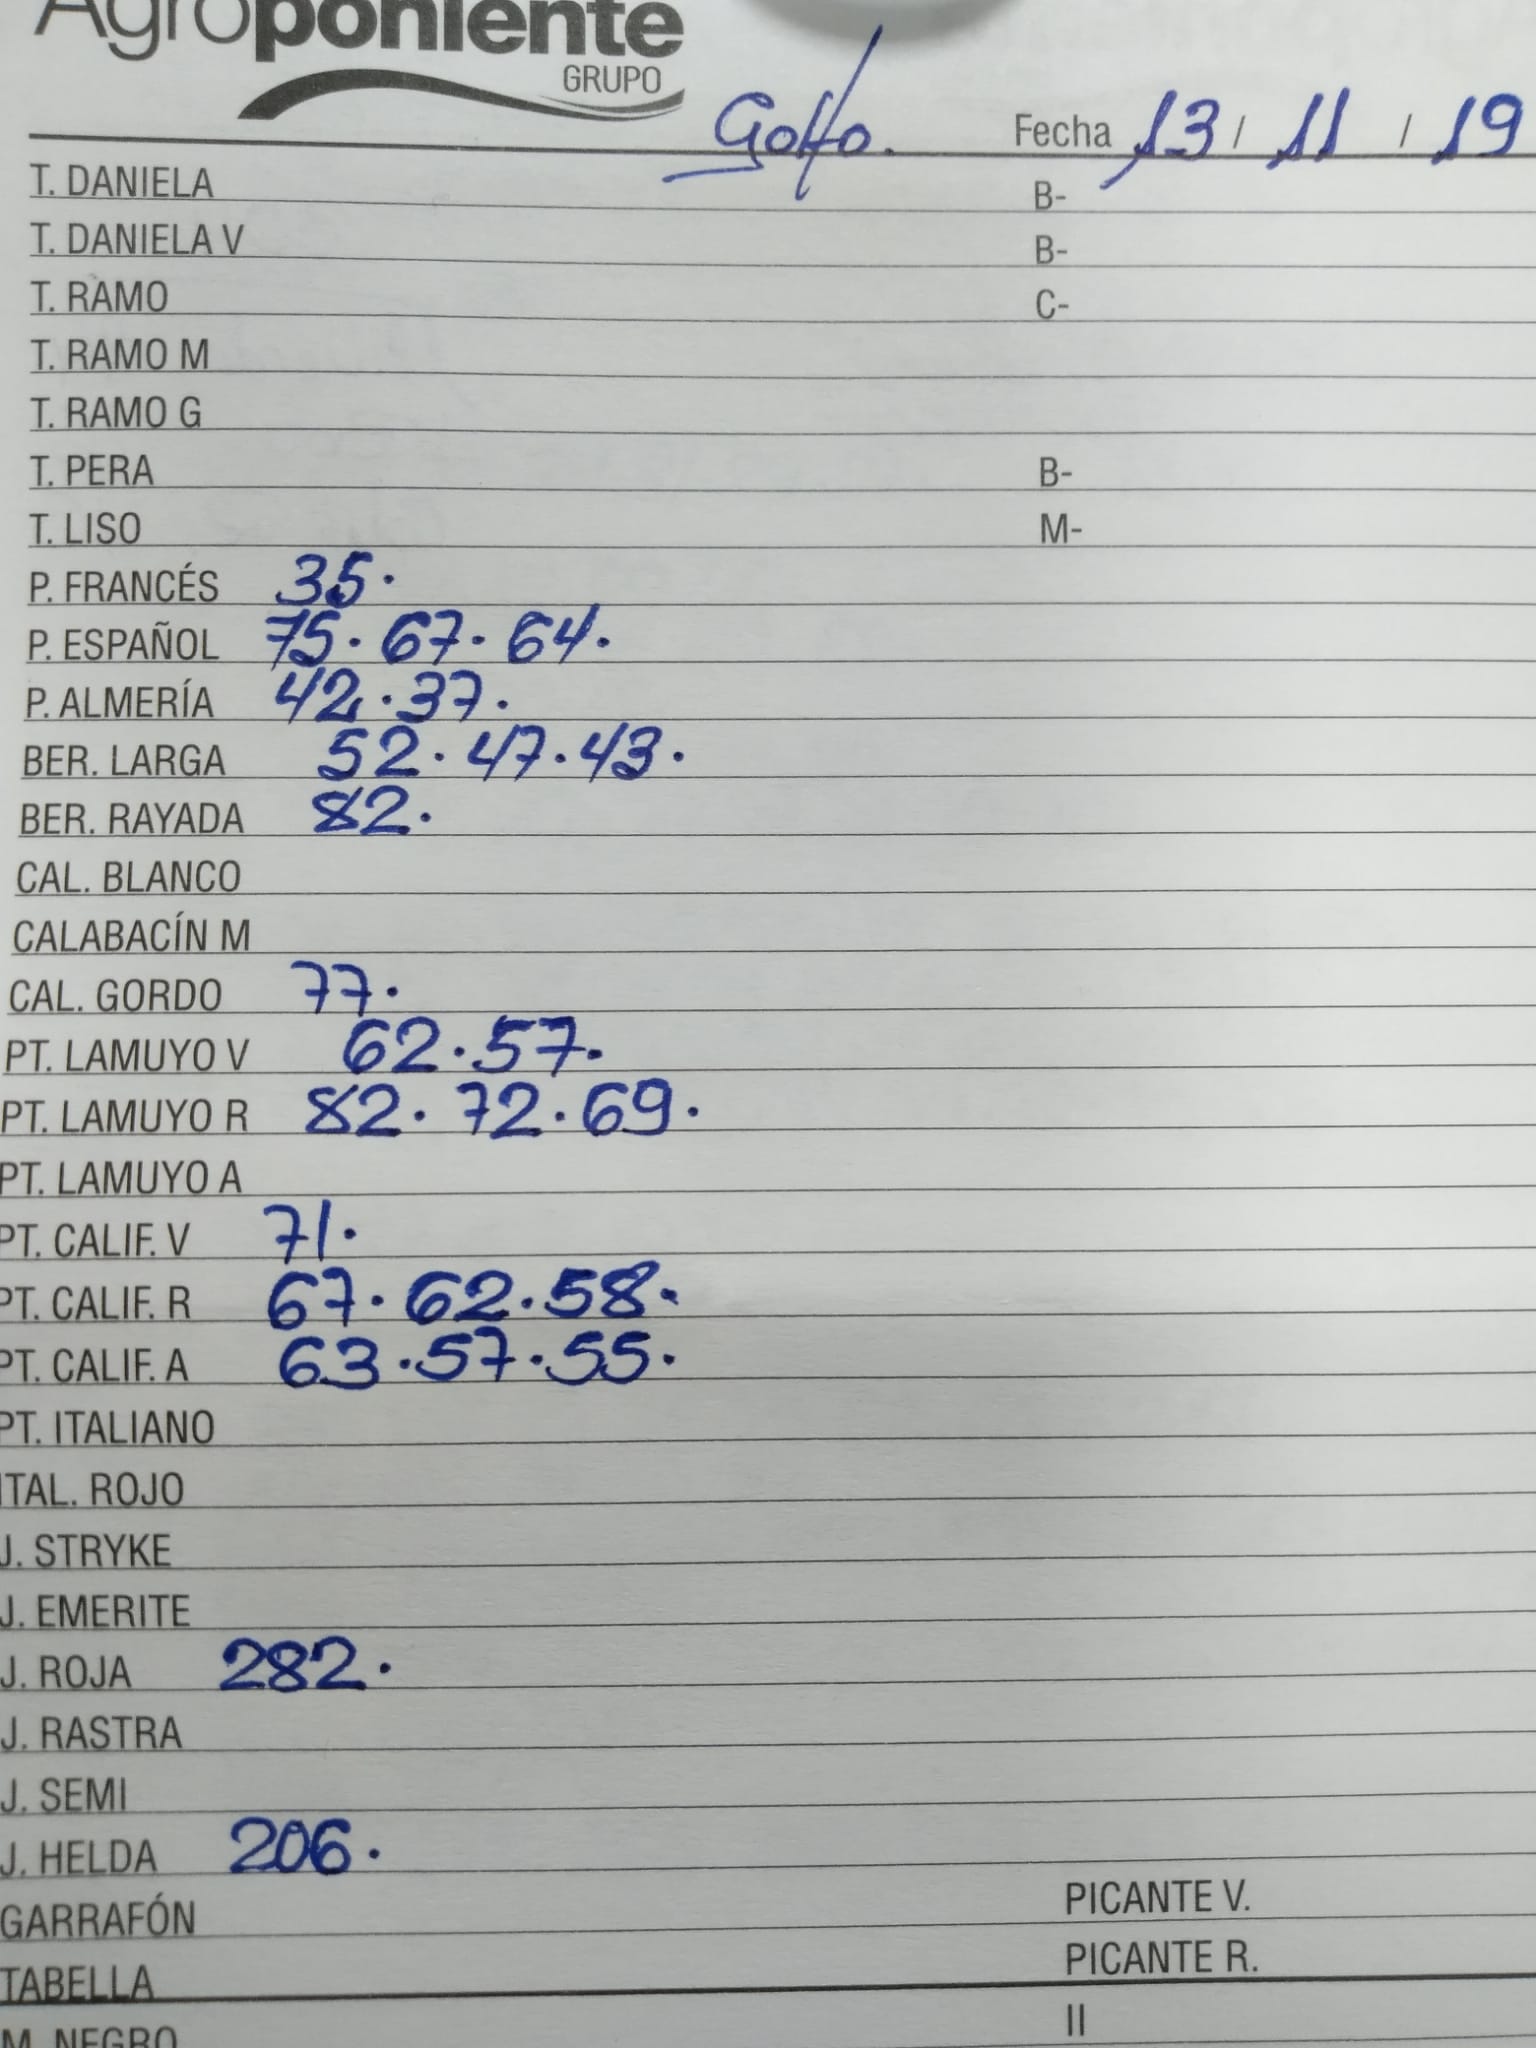 Agroponiente
GRUPO
Golfo. Fecha 13 / 11 / 19
T. DANIELA B-
T. DANIELA V B-
T. RAMO C-
T. RAMO M
T. RAMO G
T. PERA B-
T. LISO M-
P. FRANCÉS 35.
P. ESPAÑOL 75. 67. 64.
P. ALMERÍA 42. 37.
BER. LARGA 52. 47. 43.
BER. RAYADA 82.
CAL. BLANCO
CALABACÍN M
CAL. GORDO 77.
PT. LAMUYO V 62. 57.
PT. LAMUYO R 82. 72. 69.
PT. LAMUYO A
PT. CALIF. V 71.
PT. CALIF. R 67. 62. 58.
PT. CALIF. A 63. 57. 55.
PT. ITALIANO
ITAL. ROJO
J. STRYKE
J. EMERITE
J. ROJA 282.
J. RASTRA
J. SEMI
J. HELDA 206.
GARRAFÓN PICANTE V.
TABELLA PICANTE R.
M. NEGRO II